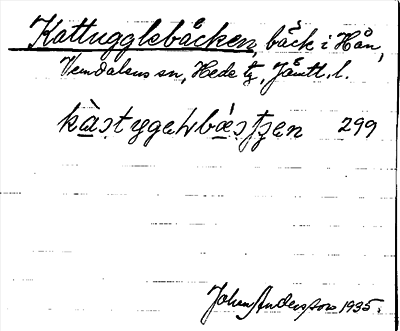 Kattugglebäcken, bäck i Hån,
Vemdalens sn, Hede tg, Jämtl. l.
kàstygelvbæ̀stsen 299
Johan Andersson 1935.